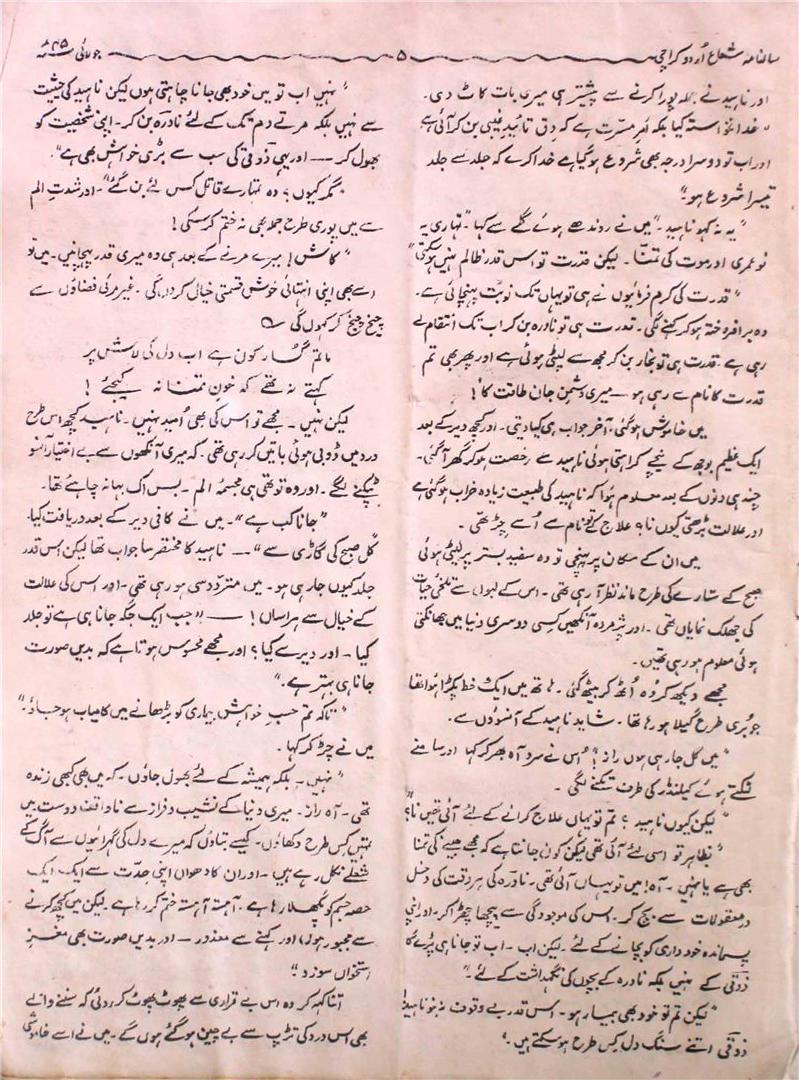 سالنامہ شعاع اُردو کراچی ۵ جولائی ۴۵ء
اور ناہید نے جملہ پورا کرنے سے پیشتر ہی میری بات کاٹ دی۔
"خدانخواستہ کیا بلکہ امرِ مسرت ہے کہ دق تائیدِ غیبی بن کر آئی ہے
اور اب تو دوسرا درجہ بھی شروع ہو گیا ہے خدا کرے کہ جلد سے جلد
تیسرا شروع ہو"
"یہ نہ کہو ناہید۔" میں نے روندھے ہوئے گلے سے کہا "تمہاری یہ
نو عمری اور موت کی تمنّا۔ لیکن قدرت تو اس قدر ظالم نہیں ہو سکتی"
"قدرت کی کرم فرمائیوں نے ہی تو یہاں تک نوبت پہنچائی ہے۔
وہ برافروختہ ہو کر کہنے لگی۔ قدرت ہی تو نادرہ بن کر اب تک انتقام لے
رہی ہے۔ قدرت ہی تو بخار بن کر مجھ سے لپٹی ہوئی ہے اور پھر بھی تم
قدرت کا نام لے رہی ہو — میری دشمنِ جان طاقت کا!
میں خاموش ہو گئی۔ آخر جواب ہی کیا دیتی۔ اور کچھ دیر کے بعد
ایک عظیم بوجھ کے نیچے کراہتی ہوئی ناہید سے رخصت ہو کر گھر آ گئی۔
چند ہی دنوں کے بعد معلوم ہوا کہ ناہید کی طبیعت زیادہ خراب ہو گئی ہے
اور علالت بڑھتی کیوں نا؟ علاج کے تو نام سے اُسے چڑ تھی۔
میں ان کے مکان پر پہنچی تو وہ سفید بستر پر لیٹی ہوئی
صبح کے ستارے کی طرح ماند نظر آ رہی تھی۔ اس کے لبوں سے تلخئ حیات
کی جھلک نمایاں تھی۔ اور پژمردہ آنکھیں کسی دوسری دنیا میں جھانکتی
ہوئی معلوم ہو رہی تھیں۔
مجھے دیکھ کر وہ اُٹھ کر بیٹھ گئی۔ ہاتھ میں ایک خط پکڑا ہوا تھا
جو بُری طرح گیلا ہو رہا تھا۔ شاید ناہید کے آنسوؤں سے۔
"میں کل جا رہی ہوں راز؟" اُس نے سرد آہ بھر کر کہا اور سامنے
لٹکتے ہوئے کیلنڈر کی طرف تکنے لگی۔
"لیکن کیوں ناہید؟ تم تو یہاں علاج کرانے کے لئے آئی تھیں نا؟"
"بظاہر تو اسی لئے آئی تھی لیکن کون جانتا ہے کہ مجھے جینے کی تمنا
بھی ہے یا نہیں۔ آہ! میں تو یہاں آئی تھی۔ نادرہ کی ہر وقت کی دخل
در معقولات سے بچ کر۔ اس کی موجودگی سے پیچھا چھڑا کر۔ اور اپنی
پسماندہ خودداری کو بچانے کے لئے۔ لیکن اب۔ اب تو جانا ہی پڑے گا
ذوقی کے نہیں بلکہ نادرہ کے بچوں کی نگہداشت کے لئے۔"
"لیکن تم تو خود بھی بیمار ہو۔ اس قدر بے وقوف نہ بنو ناہید!
ذوقی اتنے سنگ دل کس طرح ہو سکتے ہیں۔"
"نہیں اب تو میں خود بھی جانا چاہتی ہوں لیکن ناہید کی حیثیت
سے نہیں بلکہ مرتے دم تک کے لئے نادرہ بن کر۔ اپنی شخصیت کو
بھول کر — اور یہی ذوقی کی سب سے بڑی خواہش بھی ہے"۔
"مگر کیوں؟ وہ تمہارے قاتل کس لئے بن گئے"۔ اور شدتِ الم
سے میں پوری طرح جملہ بھی نہ ختم کر سکی!
"کاش! میرے مرنے کے بعد ہی وہ میری قدر پہچانیں۔ میں تو
اسے بھی اپنی انتہائی خوش قسمتی خیال کروں گی۔ غیر مرئی فضاؤں سے
چیخ چیخ کر کہوں گی ؎
ماتم گسار کون ہے اب دل کی لاش پر
کہتے نہ تھے کہ خونِ تمنا نہ کیجئے!
لیکن نہیں۔ مجھے تو اس کی بھی اُمید نہیں۔ ناہید کچھ اس طرح
درد میں ڈوبی ہوئی باتیں کر رہی تھی۔ کہ میری آنکھوں سے بے اختیار آنسو
ٹپکنے لگے۔ اور وہ تو تھی ہی مجسمۂ الم۔ بس اک بہانہ چاہئے تھا۔
"جانا کب ہے"۔ میں نے کافی دیر کے بعد دریافت کیا۔
"کل صبح کی گاڑی سے"۔— ناہید کا مختصر سا جواب تھا لیکن اس قدر
جلد کیوں جا رہی ہو۔ میں متردد سی ہو رہی تھی۔ اور اس کی علالت
کے خیال سے ہراساں! — "جب ایک جگہ جانا ہی ہے تو جلد
کیا۔ اور دیر سے کیا؟ اور مجھے محسوس ہوتا ہے کہ بدیں صورت
جانا ہی بہتر ہے۔"
"تاکہ تم حسبِ خواہش بیماری کو بڑھانے میں کامیاب ہو جاؤ۔"
میں نے چڑ کر کہا۔
"نہیں۔ بلکہ ہمیشہ کے لئے بھول جاؤں۔ کہ میں بھی کبھی زندہ
تھی۔ آہ راز۔ میری دنیا کے نشیب و فراز سے ناواقف دوست میں
تمہیں کس طرح دکھاؤں۔ کیسے بتاؤں کہ میرے دل کی گہرائیوں سے آگ کے
شعلے نکل رہے ہیں۔ اور ان کا دھواں اپنی حدت سے ایک ایک
حصہ جسم کو پگھلا رہا ہے۔ آہستہ آہستہ ختم کر رہا ہے۔ لیکن میں کچھ کرنے
سے مجبور ہوں، اور کہنے سے معذور — اور بدیں صورت بھی مغزِ
استخواں سوزد"
اتنا کہہ کر وہ اس بے قراری سے پھوٹ پھوٹ کر روئی کہ سننے والے
بھی اس درد کی تڑپ سے بے چین ہو گئے ہوں گے۔ میں نے اسے خاموشی